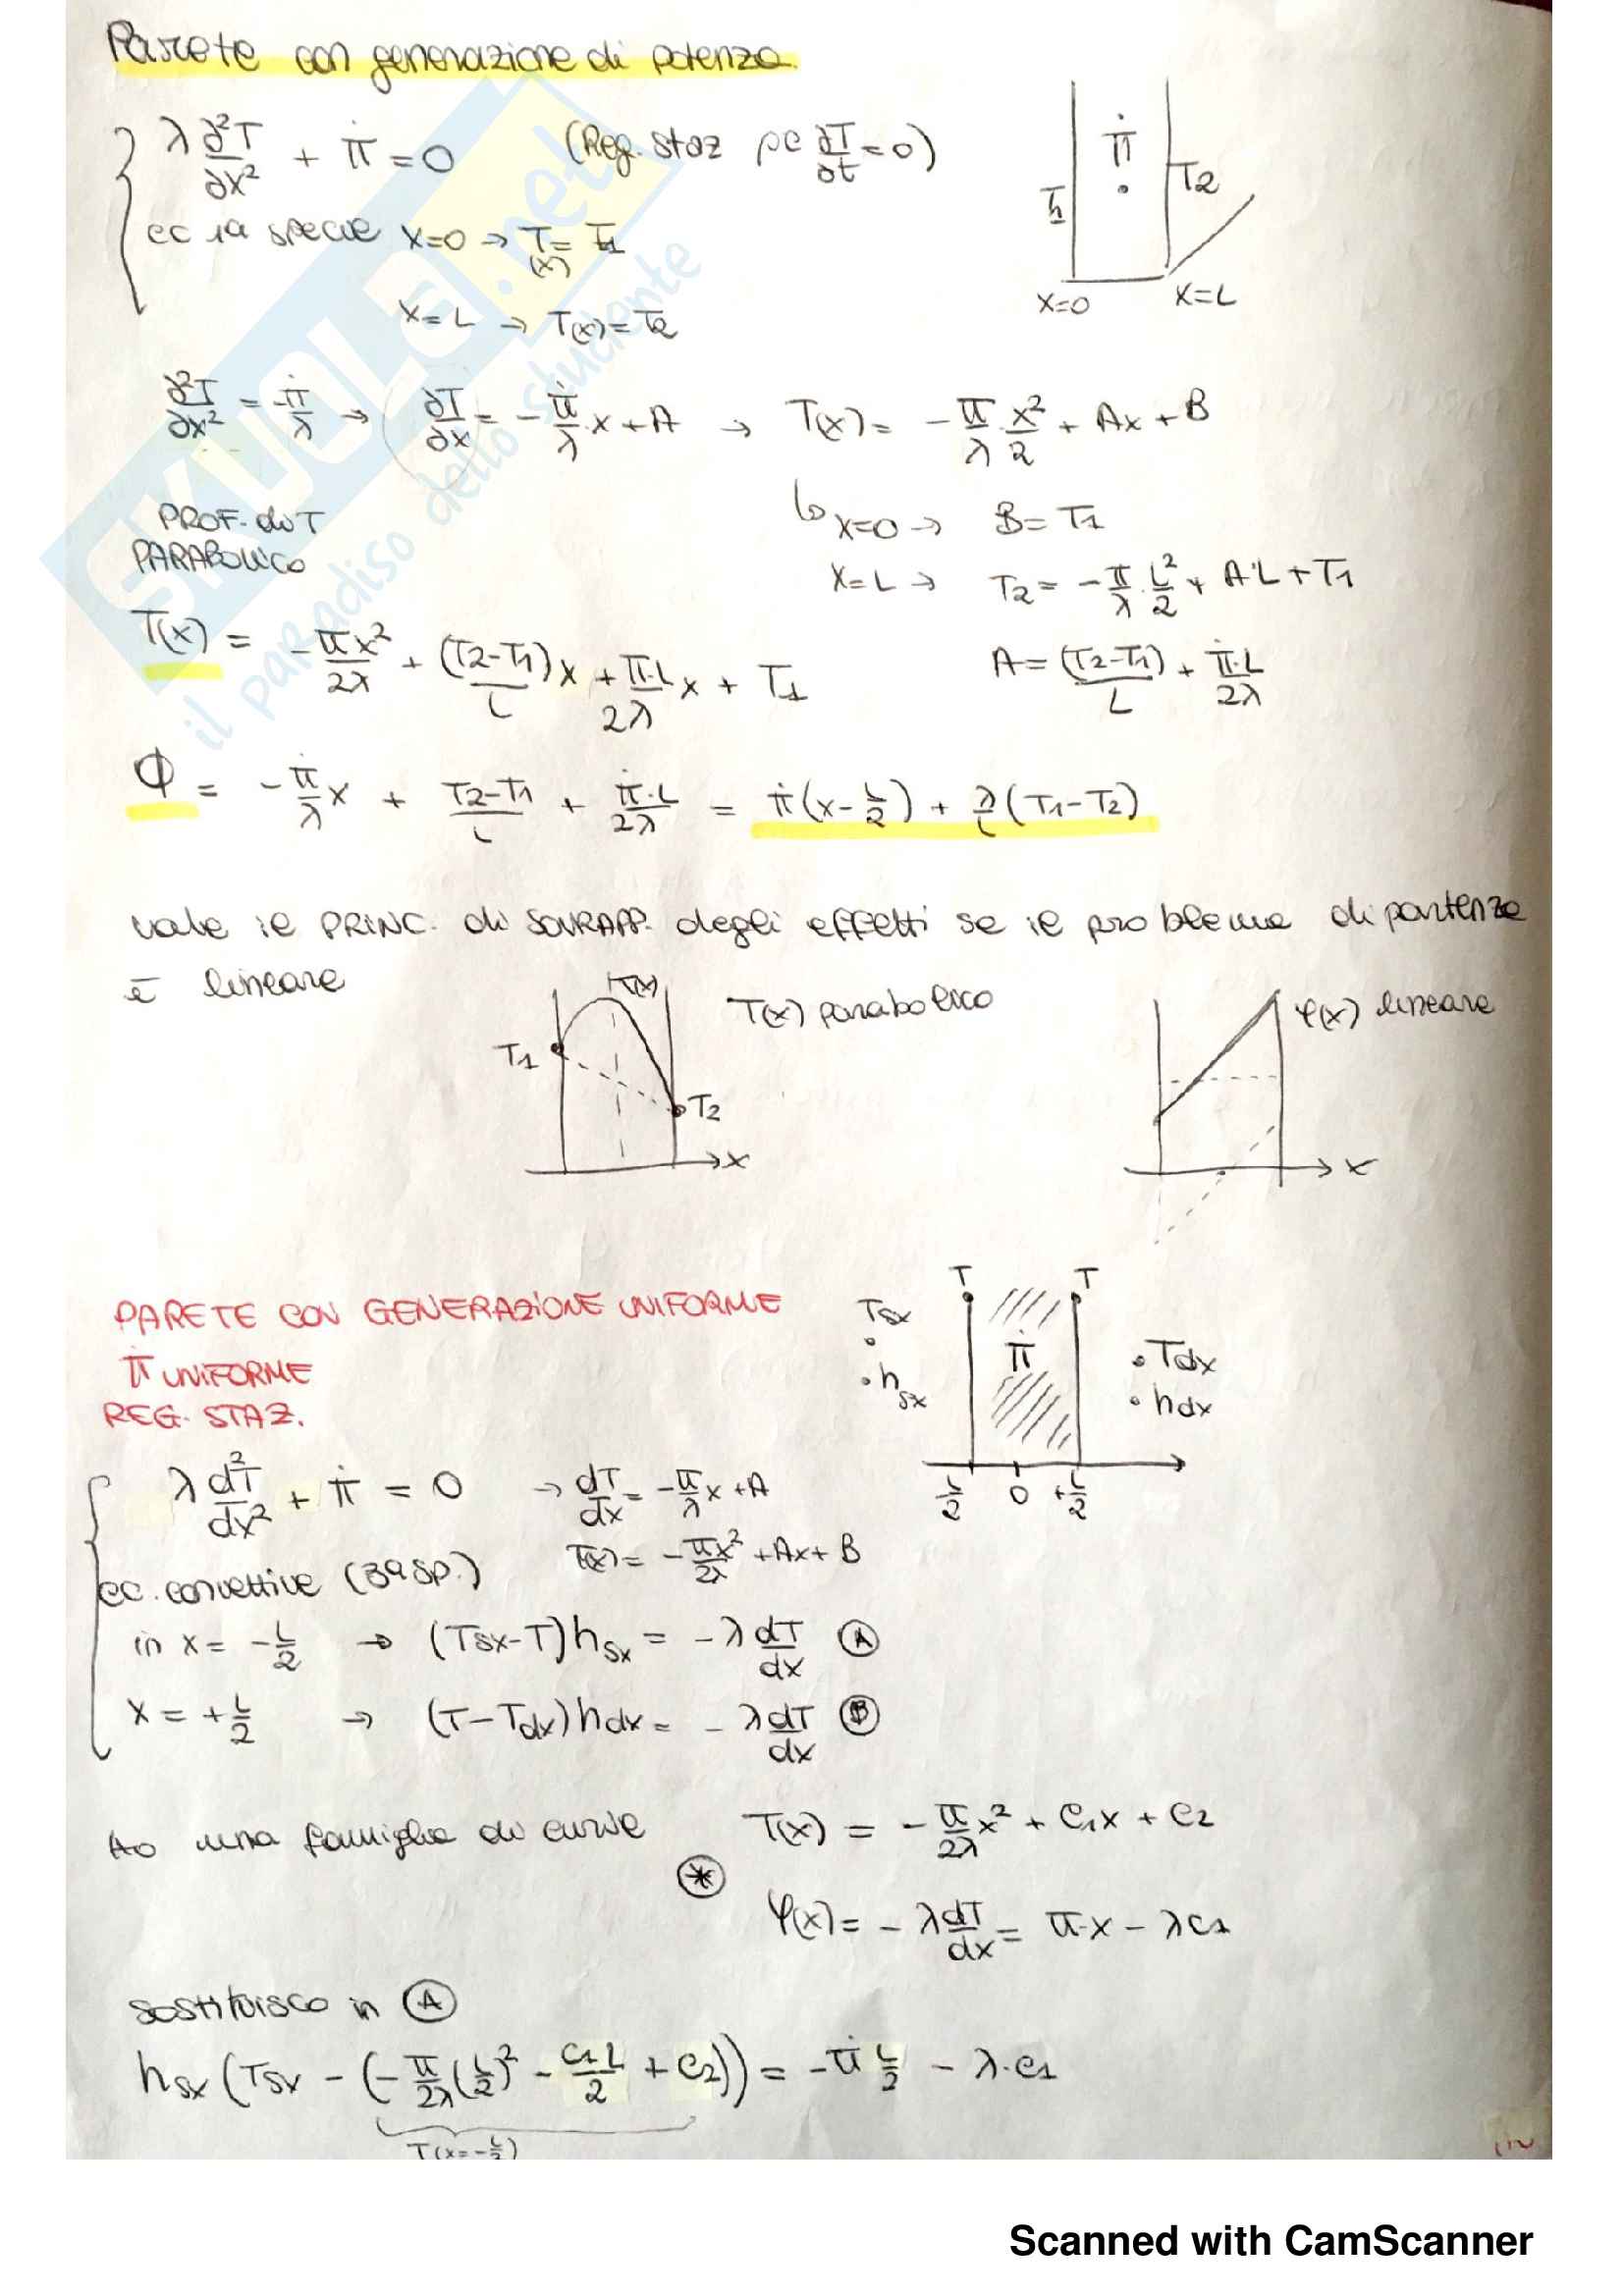 Parete con generazione di potenza.
λ ∂²T/∂x² + π̇ = 0 (Reg. staz pc ∂T/∂t = 0)
cc 1a specie x=0 → T(x) = T1
x=L → T(x) = T2
π̇
T1
T2
x=0
x=L
∂²T/∂x² = -π̇/λ → ∂T/∂x = -π̇/λ x + A → T(x) = -π/λ · x²/2 + Ax + B
↳ x=0 → B = T1
PROF. di T
PARABOLICO
x=L → T2 = -π/λ · L²/2 + A·L + T1
T(x) = -πx²/2λ + (T2-T1)/L x + π·L/2λ x + T1
A = (T2-T1)/L + π̇·L/2λ
Φ = -π̇/λ x + T2-T1/L + π̇·L/2λ = π̇(x - L/2) + λ/L (T1-T2)
vale il PRINC. di SOVRAPP. degli effetti se il problema di partenza
è lineare
T(x)
T(x) parabolico
T1
T2
x
φ(x) lineare
x
PARETE CON GENERAZIONE UNIFORME
π̇ UNIFORME
REG. STAZ.
T
T
Tsx
hsx
π̇
Tdx
hdx
L/2
0
+L/2
λ d²T/dx² + π̇ = 0 → dT/dx = -π/λ x + A
T(x) = -πx²/2λ + Ax + B
cc. convettive (3a sp.)
in x = -L/2 → (Tsx-T)hsx = -λ dT/dx Ⓐ
x = +L/2 → (T-Tdx)hdx = -λ dT/dx Ⓑ
Ho una famiglia di curve
T(x) = -π/2λ x² + C1x + C2
⊛
φ(x) = -λ dT/dx = π·x - λC1
sostituisco in Ⓐ
hsx (Tsx - (-π/2λ (L/2)² - C1L/2 + C2)) = -π̇ L/2 - λ·C1
T(x=-L/2)
SKUOLA.net
il paradiso dello studente
Scanned with CamScanner